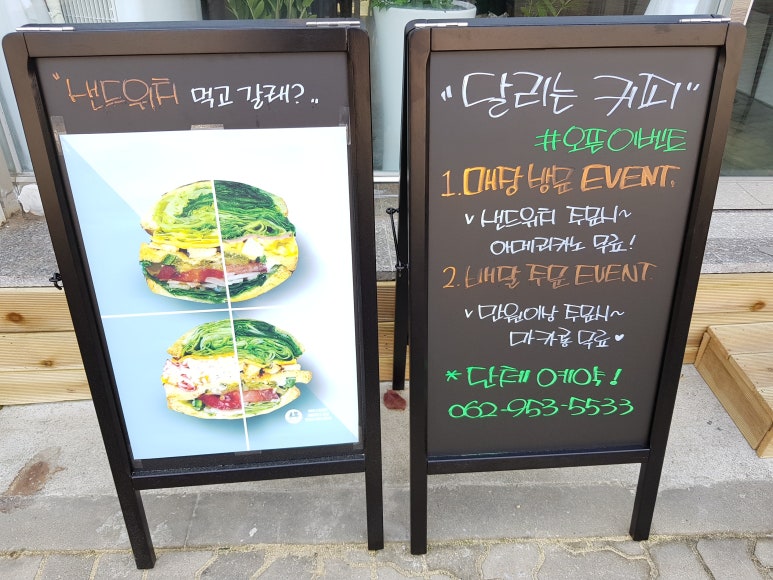 "샌드위치 먹고 갈래?"..
"달리는 커피"
#오픈이벤트
1. 매장 방문 EVENT.
v 샌드위치 주문시~
아메리카노 무료!
2. 배달 주문 EVENT.
v 만원이상 주문시~
마카롱 무료♥
* 단체 예약!
062-953-5533